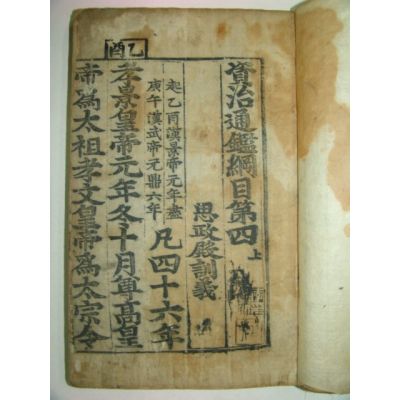 資治通鑑綱目第四上
思政殿訓義
起乙酉漢景帝元年盡
庚午漢武帝元鼎六年
凡四十六年
乙酉
孝景皇帝元年冬十月尊高皇
帝為太祖孝文皇帝為太宗令